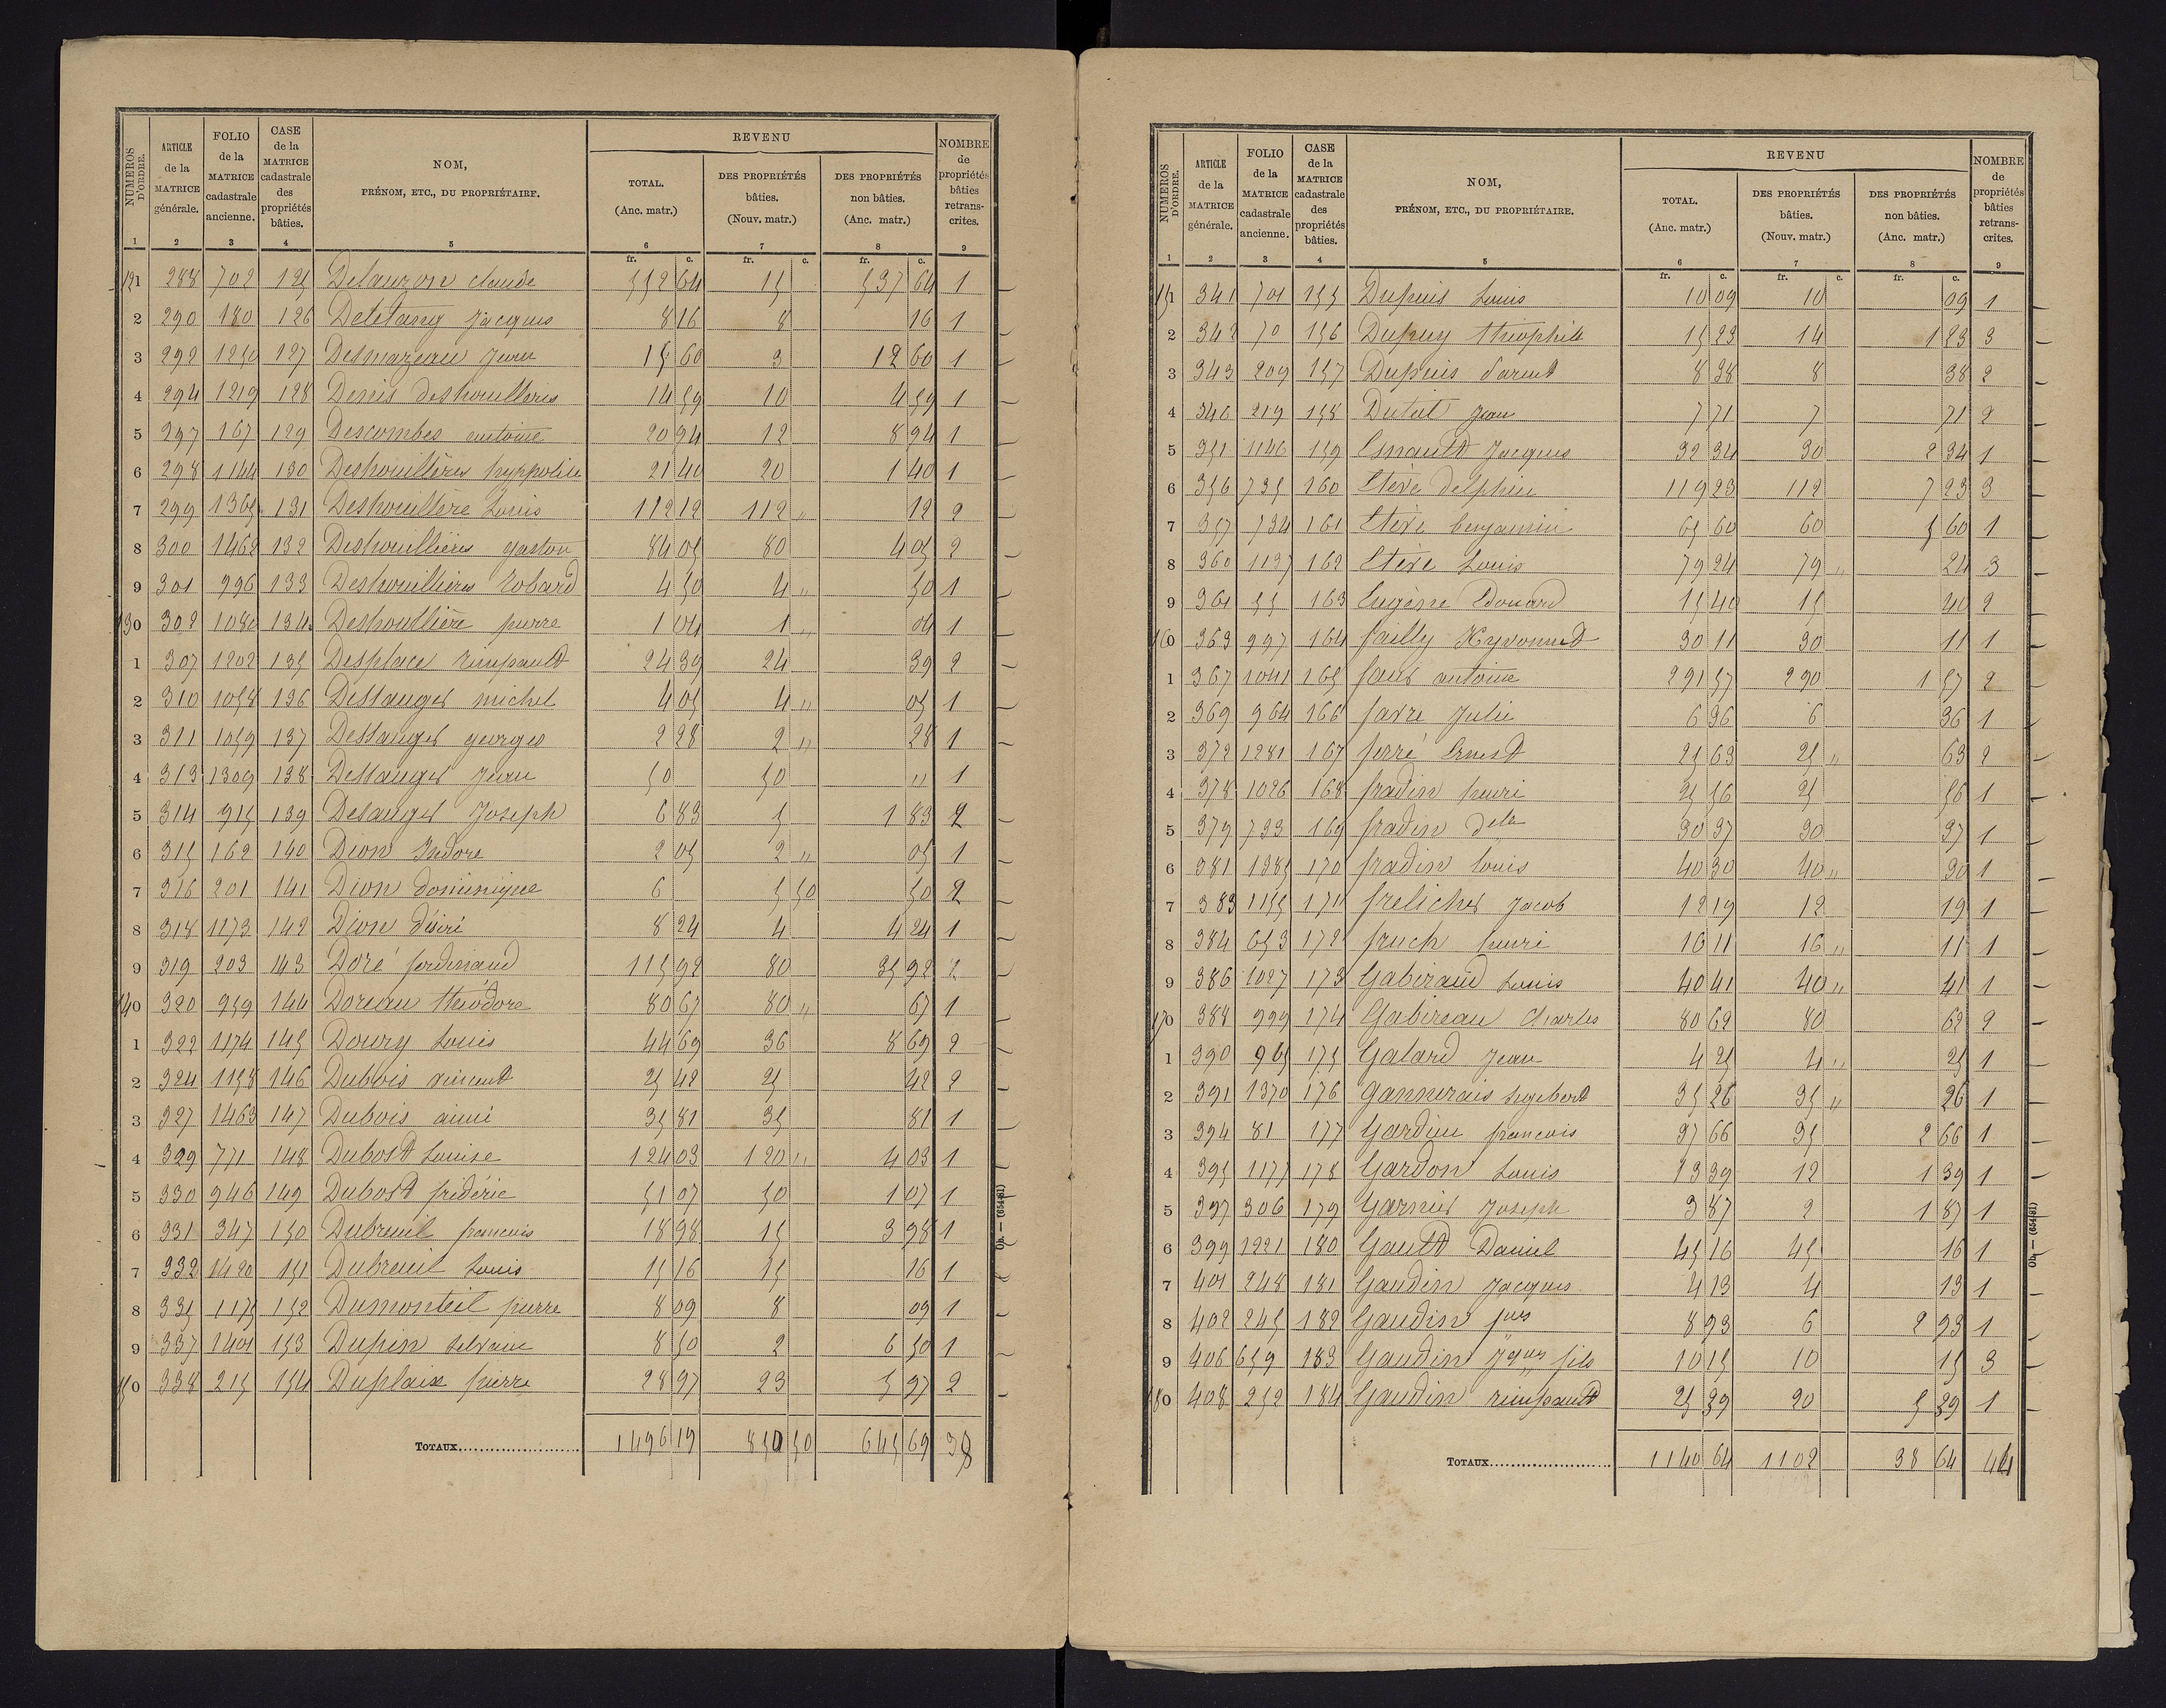 NUMÉROS D'ORDRE. | ARTICLE de la MATRICE générale. | FOLIO de la MATRICE cadastrale ancienne. | CASE de la MATRICE cadastrale des propriétés bâties. | NOM, PRÉNOM, ETC., DU PROPRIÉTAIRE. | REVENU TOTAL. (Anc. matr.) | DES PROPRIÉTÉS bâties. (Nouv. matr.) | DES PROPRIÉTÉS non bâties. (Anc. matr.) | NOMBRE de propriétés bâties retranscrites.
1 2 3 4 5 6 7 8 9
fr. c. fr. c. fr. c.
121 288 702 125 Delauzon claude 552 64 15 537 64 1
2 290 180 126 Deletang Jacques 8 16 8 16 1
3 292 1250 127 Desmazeau Jean 15 60 3 12 60 1
4 294 1219 128 Denis deshoullères 14 59 10 4 59 1
5 297 167 129 Descombes antoine 20 94 12 8 94 1
6 298 1144 130 Deshouillères hyppolite 21 40 20 1 40 1
7 299 1365 131 Deshouillère Louis 112 12 112 " 12 2
8 300 1462 132 Deshouillières gaston 84 05 80 4 05 2
9 301 996 133 Deshouillières Robard 4 50 4 " 50 1
130 302 1080 134 Deshoullière pierre 1 04 1 " 04 1
1 307 1202 135 Desplace rimpault 24 39 24 39 2
2 310 1058 136 Dessauges michel 4 05 4 " 05 1
3 311 1059 137 Dessauges georges 2 28 2 " 28 1
4 313 1309 138 Dessauges Jean 50 50 " 1
5 314 915 139 Desauges Joseph 6 83 5 1 83 2
6 315 162 140 Dion Isidore 2 05 2 " 05 1
7 316 201 141 Dion dominique 6 5 50 50 2
8 318 1173 142 Dion désiré 8 24 4 4 24 1
9 319 203 143 Doré ferdinand 115 92 80 35 92 2
140 320 959 144 Doreau théodore 80 67 80 " 67 1
1 322 1174 145 Doury Louis 44 69 36 8 69 2
2 324 1158 146 Dubois vincent 25 42 25 42 2
3 327 1463 147 Dubois aimé 35 81 35 81 1
4 329 771 148 Dubost Louise 124 03 120 " 4 03 1
5 330 946 149 Dubost frédéric 51 07 50 1 07 1
6 331 347 150 Dubreuil francois 18 98 15 3 98 1
7 332 1420 151 Dubreuil Louis 15 16 15 16 1
8 335 1175 152 Dumonteil pierre 8 09 8 09 1
9 337 1401 153 Dupin silvain 8 50 2 6 50 1
150 338 215 154 Duplaix pierre 28 97 23 5 97 2
TOTAUX 1496 19 850 50 645 69 38
Ob. — (654-81)
NUMÉROS D'ORDRE. | ARTICLE de la MATRICE générale. | FOLIO de la MATRICE cadastrale ancienne. | CASE de la MATRICE cadastrale des propriétés bâties. | NOM, PRÉNOM, ETC., DU PROPRIÉTAIRE. | REVENU TOTAL. (Anc. matr.) | DES PROPRIÉTÉS bâties. (Nouv. matr.) | DES PROPRIÉTÉS non bâties. (Anc. matr.) | NOMBRE de propriétés bâties retranscrites.
1 2 3 4 5 6 7 8 9
fr. c. fr. c. fr. c.
151 341 701 155 Dupuis Louis 10 09 10 09 1
2 342 70 156 Dupuy théophile 15 23 14 1 23 3
3 343 209 157 Dupuis 8 38 8 38 2
4 346 219 158 Duteil Jean 7 71 7 71 2
5 351 1146 159 Esnault Jacques 32 34 30 2 34 1
6 356 735 160 Etève delphin 119 23 112 7 23 3
7 357 734 161 Etève benjamin 65 60 60 5 60 1
8 360 1137 162 Etève Louis 79 24 79 " 24 3
9 361 55 163 Eugène Edouard 15 40 15 40 2
160 363 997 164 failly 30 11 30 11 1
1 367 1041 165 faus antoine 291 57 290 1 57 2
2 369 964 166 favre Julie 6 36 6 36 1
3 372 1281 167 ferré Ernest 25 63 25 " 63 2
4 378 1026 168 fradin henri 25 56 25 56 1
5 379 733 169 fradin delle 30 37 30 37 1
6 381 1385 170 fradin louis 40 30 40 " 30 1
7 383 1155 171 frelicher Jacob 12 19 12 19 1
8 384 653 172 fruch henri 16 11 16 " 11 1
9 386 1027 173 Gabiraud Louis 40 41 40 " 41 1
170 388 999 174 Gabireau Charles 80 62 80 62 2
1 390 965 175 Galard Jean 4 25 4 " 25 1
2 391 1370 176 Gannerais Ingebert 35 26 35 " 26 1
3 394 81 177 Gardien francois 37 66 35 2 66 1
4 395 1177 178 Gardon Louis 13 39 12 1 39 1
5 397 306 179 Garnier Joseph 3 87 2 1 87 1
6 399 1221 180 Gault Daniel 45 16 45 16 1
7 401 248 181 Gaudin Jacques 4 13 4 13 1
8 402 245 182 Gaudin jques 8 93 6 2 93 1
9 406 659 183 Gaudin Jques fils 10 15 10 15 3
180 408 252 184 Gaudin rimpault 25 39 20 5 39 1
TOTAUX 1140 64 1102 38 64 44
Ob. — (654-81)